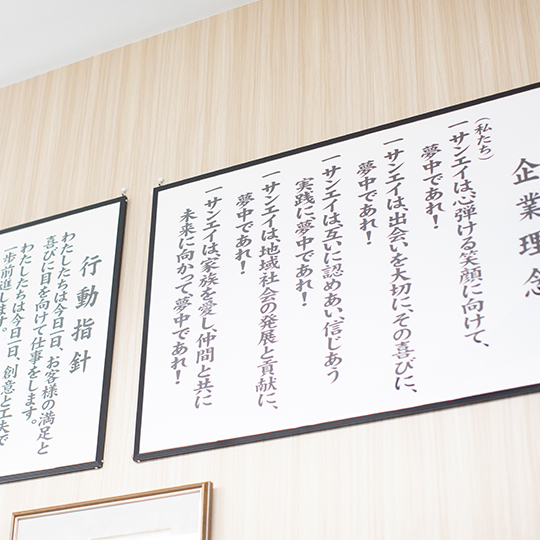 企業理念
(私たち)
一 サンエイは、心弾ける笑顔に向けて、
夢中であれ!
一 サンエイは、出会いを大切に、その喜びに、
夢中であれ!
一 サンエイは、互いに認めあい、信じあう
実践に、夢中であれ!
一 サンエイは、地域社会の発展と貢献に、
夢中であれ!
一 サンエイは、家族を愛し、仲間と共に
未来に向かって、夢中であれ!
行動指針
わたしたちは今日一日、お客様の満足と
喜びに目を向けて仕事をします。
わたしたちは今日一日、創意と工夫で
一歩前進します。